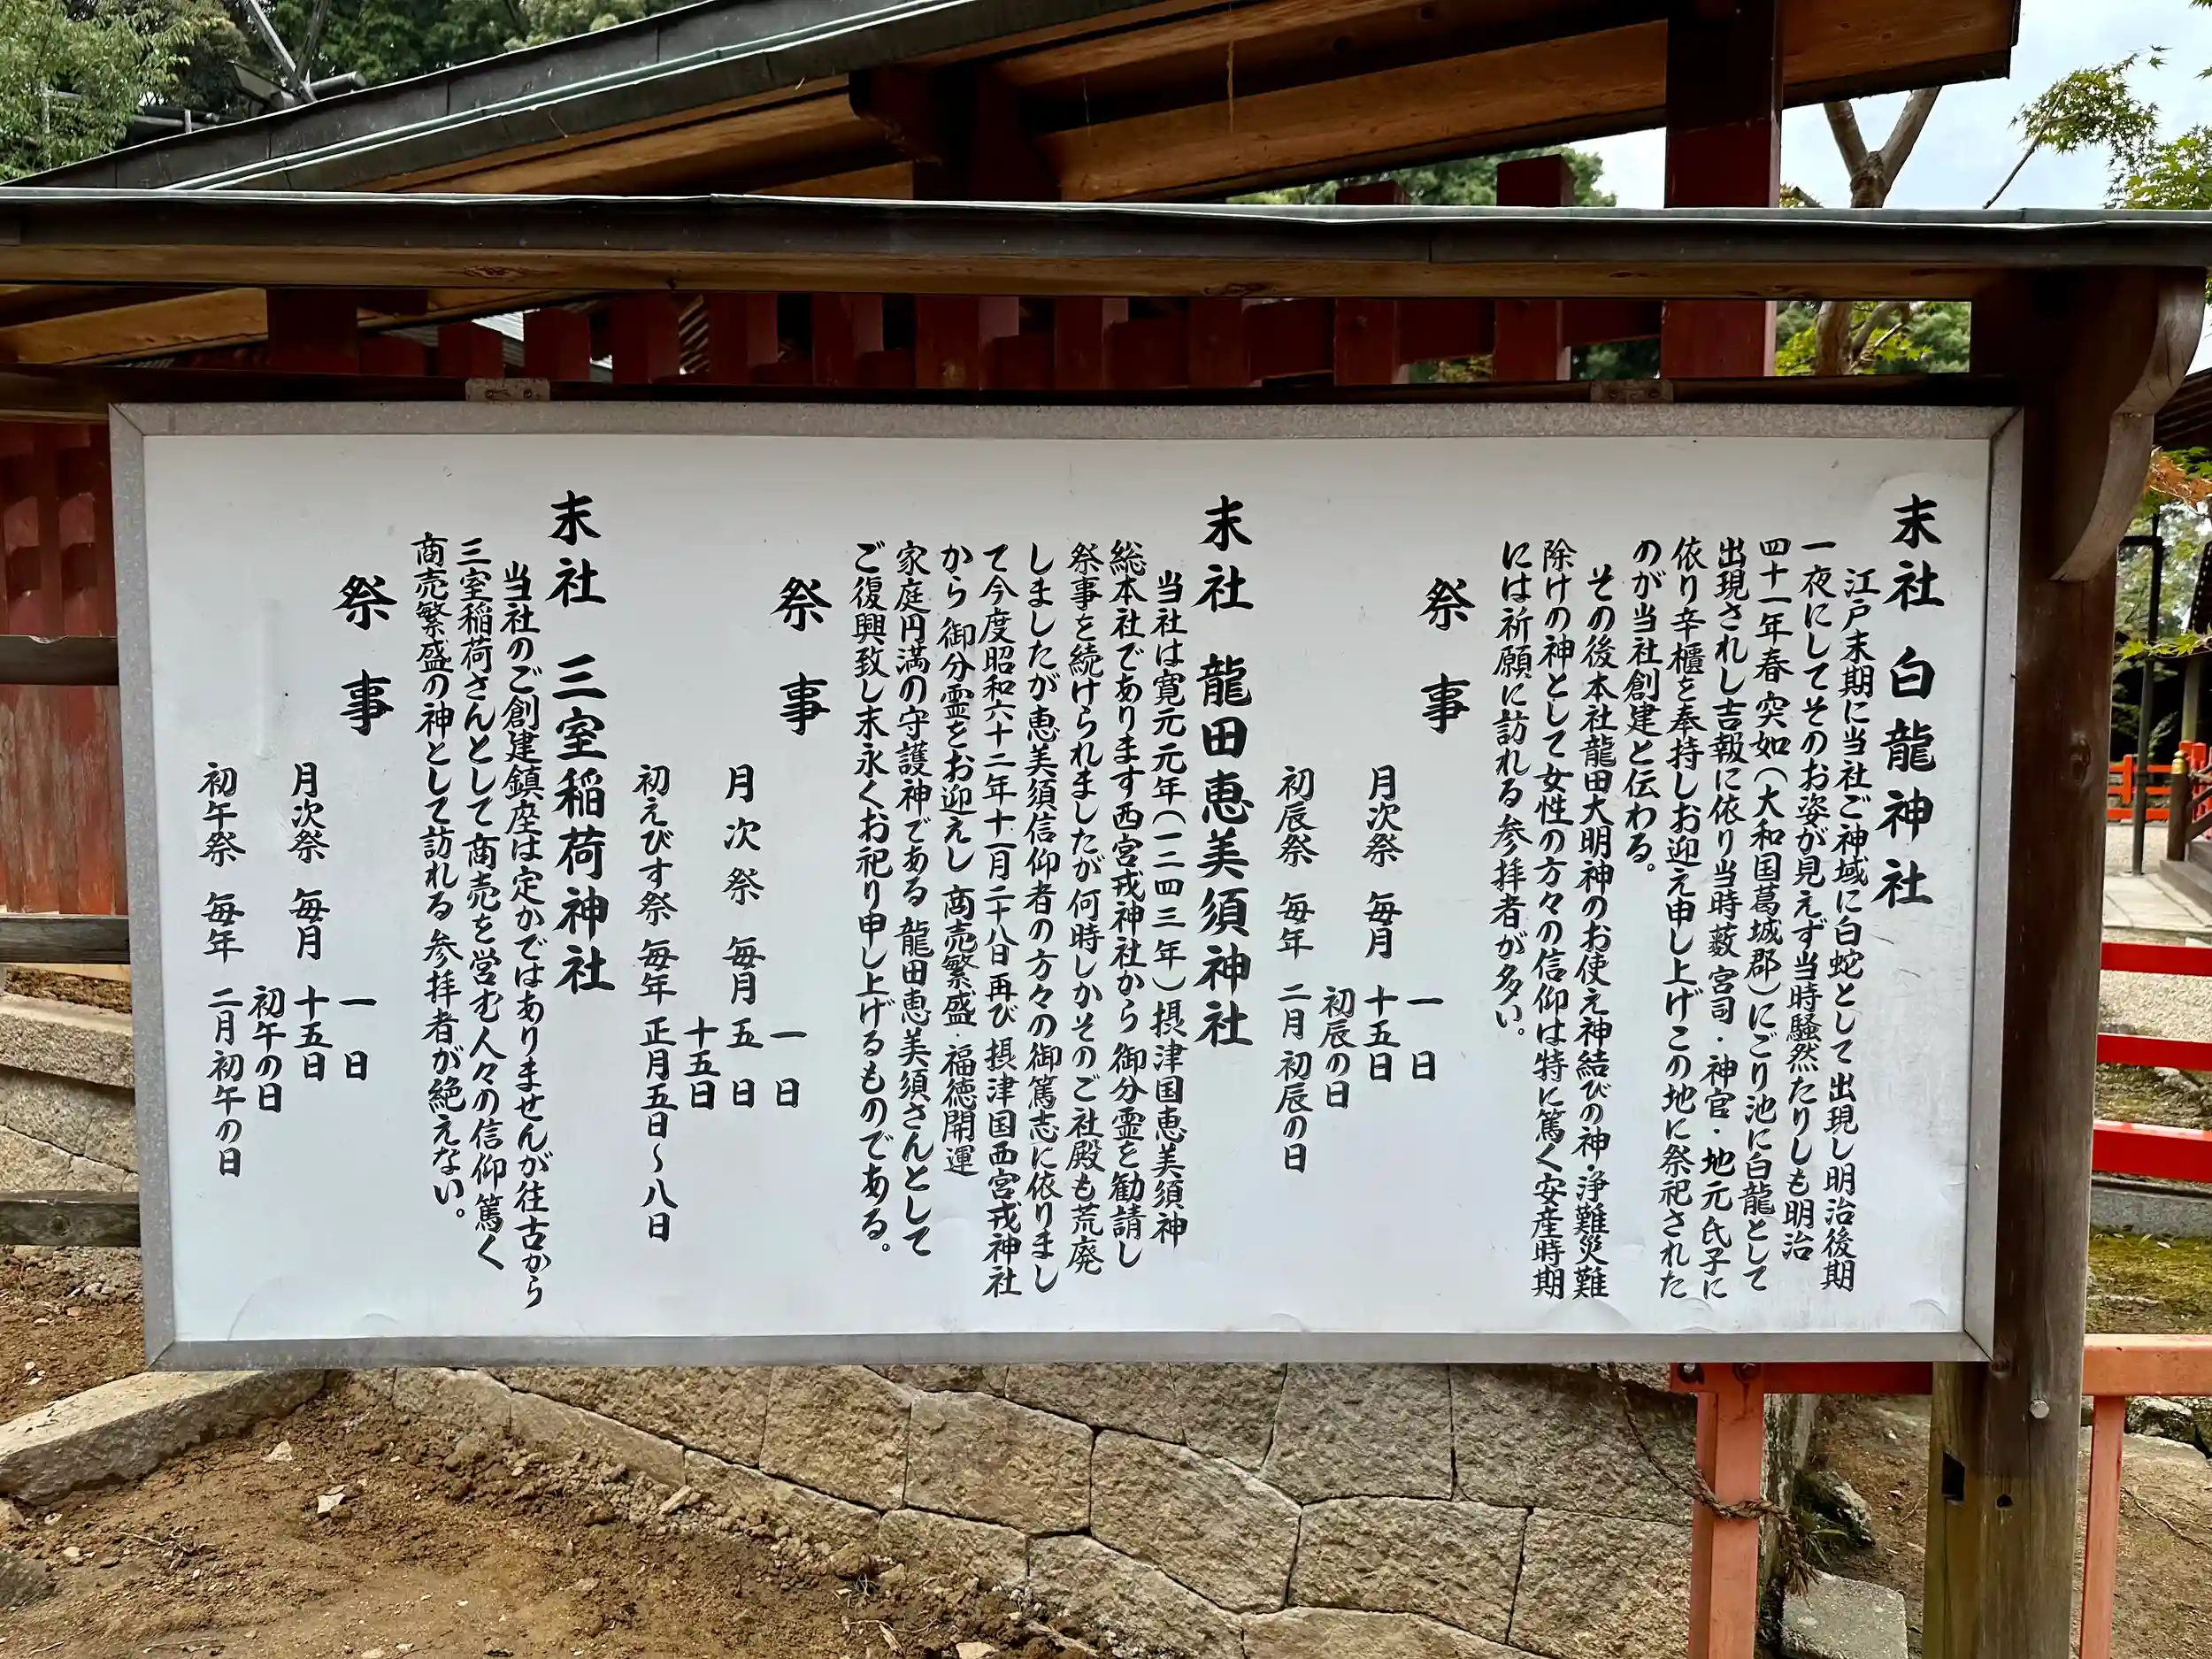 末社 白龍神社
江戸末期に当社ご神域に白蛇として出現し明治後期
一夜にしてそのお姿が見えず当時騒然たりしも明治
四十一年春突如(大和国葛城郡)にごり池に白龍として
出現されし吉報に依り当時藪宮司・神官・地元氏子に
依り辛櫃を奉持しお迎え申し上げこの地に祭祀された
のが当社創建と伝わる。
その後本社龍田大明神のお使え神結びの神・浄難災難
除けの神として女性の方々の信仰は特に篤く安産時期
には祈願に訪れる参拝者が多い。
祭事
一日
月次祭 毎月 十五日
初辰の日
初辰祭 毎年 二月初辰の日
末社 龍田恵美須神社
当社は寛元元年(一二四三年)摂津国恵美須神
総本社であります西宮戎神社から御分霊を勧請し
祭事を続けられましたが何時しかそのご社殿も荒廃
しましたが恵美須信仰者の方々の御篤志に依りまし
て今度昭和六十二年十一月二十八日再び摂津国西宮戎神社
から御分霊をお迎えし 商売繁盛・福徳開運
家庭円満の守護神である 龍田恵美須さんとして
ご復興致し末永くお祀り申し上げるものである。
祭事
一日
月次祭 毎月 五日
十五日
初えびす祭 毎年 正月五日~八日
末社 三室稲荷神社
当社のご創建鎮座は定かではありませんが往古から
三室稲荷さんとして商売を営む人々の信仰篤く
商売繁盛の神として訪れる参拝者が絶えない。
祭事
一日
月次祭 毎月 十五日
初午の日
初午祭 毎年 二月初午の日